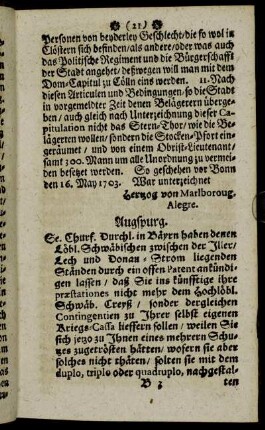 (21)
Personen von beyderley Geschlecht/die so wol in
Clöstern sich befinden/als andere/oder was auch
das Politische Regiment und die Bürgerschafft
der Stadt angehet/deßwegen will man mit dem
Dom-Capitul zu Cölln eins werden. 11. Nach
diesen Articulen und Bedingungen/so die Stadt
in vorgemeldter Zeit denen Belägerern überge-
ben/auch gleich nach Unterzeichnung dieser Ca-
pitulation nicht das Stern-Thor/wie die Be-
lägerten wollen/sondern die Stocken-Pfort ein-
geräumet/und von einem Obrist-Lieutenant/
samt 300. Mann um alle Unordnung zu vermei-
den besetzet werden. So geschehen vor Bonn
den 16. May 1703. War unterzeichnet
Hertzog von Marlboroug.
Alegre.
Augspurg.
Se. Churf. Durchl. in Bäyrn haben denen
Löbl. Schwäbischen zwischen der Jller/
Lech und Donau-Strom liegenden
Ständen durch ein offen Patent ankündi-
gen lassen/daß Sie ins künfftige ihre
præstationes nicht mehr dem Hochlöbl.
Schwäb. Creyß/sondern dergleichen
Contingentien zu Jhrer selbst eigenen
Kriegs-Cassa lieffern sollen/weilen Sie
sich jezo zu Jhnen eines mehrern Schu-
zes zugetrösten hätten/wofern sie aber
solches nicht thäten/solten sie mit dem
duplo, triplo oder quadruplo, nachgestal-
B 3 ten